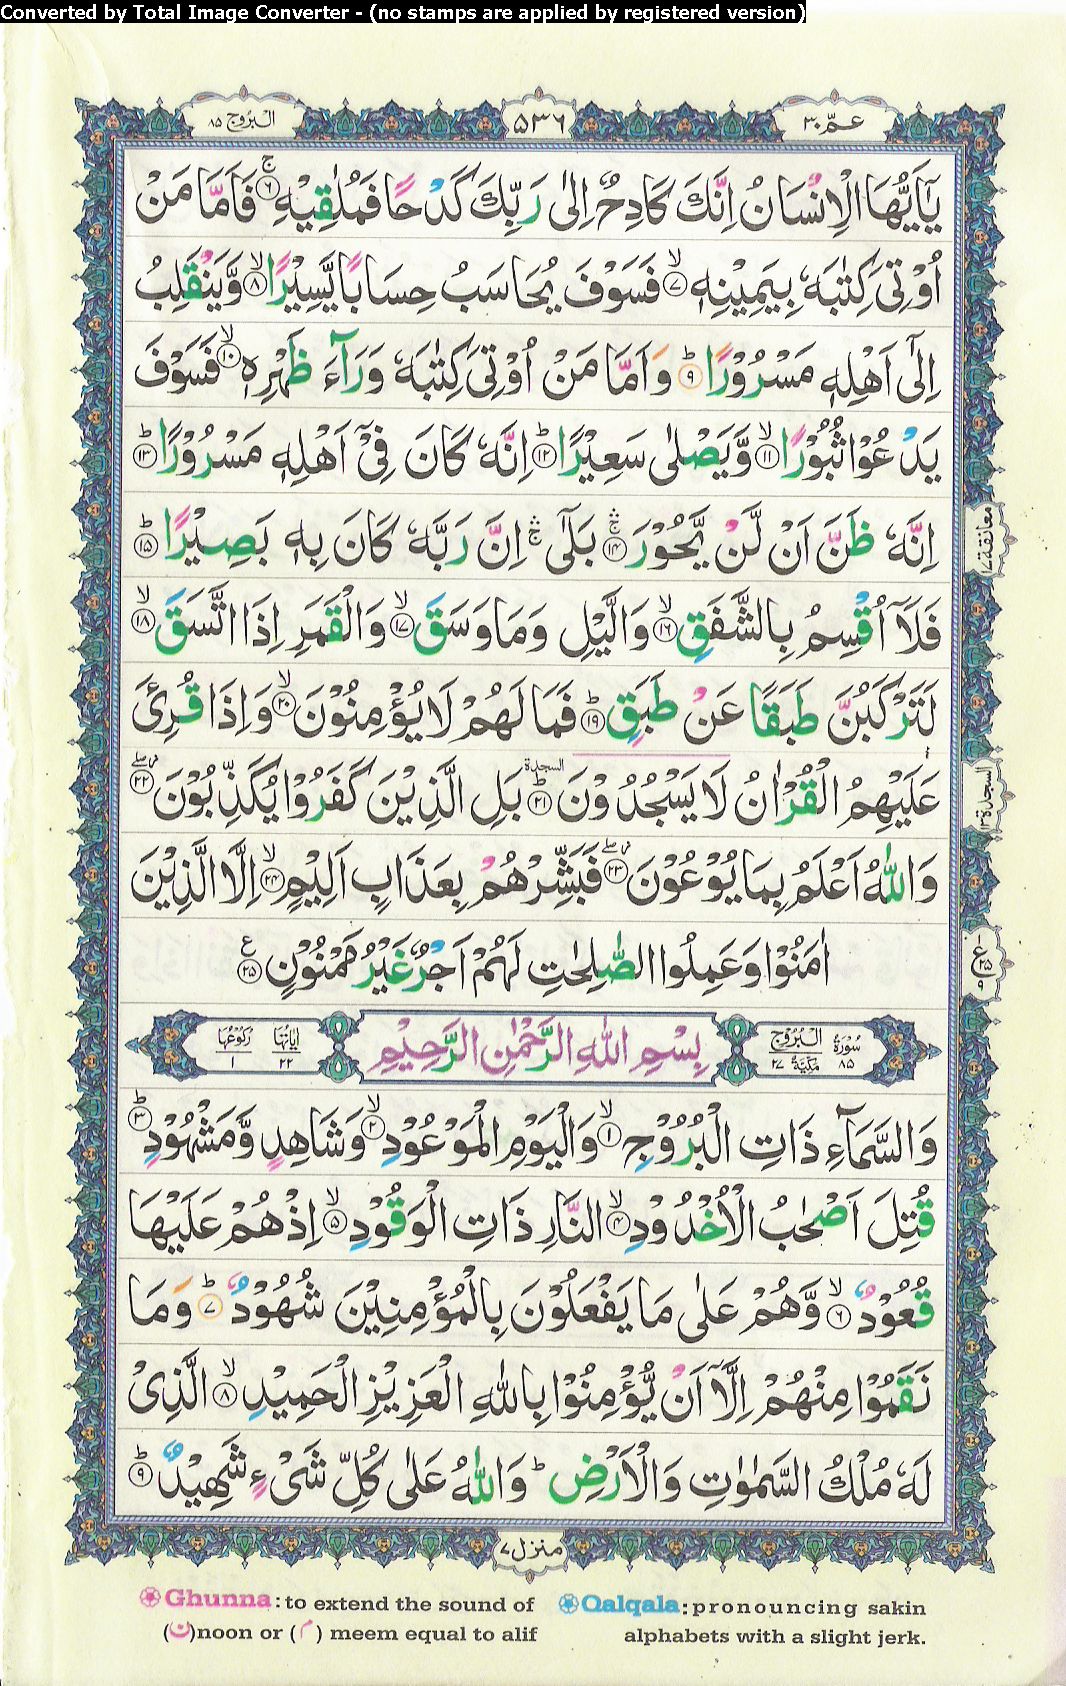 Converted by Total Image Converter - (no stamps are applied by registered version)
عمّ ٣٠
٥٣٦
البروج ٨٥
يٰۤاَيُّهَا الْاِنْسَانُ اِنَّكَ كَادِحٌ اِلٰى رَبِّكَ كَدْحًا فَمُلٰقِيْهِ ۚ‏﴿۶﴾ فَاَمَّا مَنْ
اُوْتِىَ كِتٰبَهٗ بِيَمِيْنِهٖ ۙ‏﴿۷﴾ فَسَوْفَ يُحَاسَبُ حِسَابًا يَّسِيْرًا ۙ‏﴿۸﴾ وَّيَنْقَلِبُ
اِلٰٓى اَهْلِهٖ مَسْرُوْرًا ؕ‏﴿۹﴾ وَاَمَّا مَنْ اُوْتِىَ كِتٰبَهٗ وَرَآءَ ظَهْرِهٖ ۙ‏﴿۱۰﴾ فَسَوْفَ
يَدْعُوْا ثُبُوْرًا ۙ‏﴿۱۱﴾ وَّيَصْلٰى سَعِيْرًا ؕ‏﴿۱۲﴾ اِنَّهٗ كَانَ فِىْۤ اَهْلِهٖ مَسْرُوْرًا ؕ‏﴿۱۳﴾
اِنَّهٗ ظَنَّ اَنْ لَّنْ يَّحُوْرَ ۛۚ‏﴿۱۴﴾ بَلٰٓى ۛۚ اِنَّ رَبَّهٗ كَانَ بِهٖ بَصِيْرًا ؕ‏﴿۱۵﴾
معانقة ١٧
فَلَاۤ اُقْسِمُ بِالشَّفَقِ ۙ‏﴿۱۶﴾ وَالَّيْلِ وَمَا وَسَقَ ۙ‏﴿۱۷﴾ وَالْقَمَرِ اِذَا اتَّسَقَ ۙ‏﴿۱۸﴾
لَتَرْكَبُنَّ طَبَقًا عَنْ طَبَقٍ ؕ‏﴿۱۹﴾ فَمَا لَهُمْ لَا يُؤْمِنُوْنَ ۙ‏﴿۲۰﴾ وَاِذَا قُرِئَ
عَلَيْهِمُ الْقُرْاٰنُ لَا يَسْجُدُوْنَ ؕ‏﴿۲۱﴾ السجدة بَلِ الَّذِيْنَ كَفَرُوْا يُكَذِّبُوْنَ ۖ‏﴿۲۲﴾
السجدة ١٣
وَاللّٰهُ اَعْلَمُ بِمَا يُوْعُوْنَ ۖ‏﴿۲۳﴾ فَبَشِّرْهُمْ بِعَذَابٍ اَلِيْمٍ ۙ‏﴿۲۴﴾ اِلَّا الَّذِيْنَ
اٰمَنُوْا وَعَمِلُوا الصّٰلِحٰتِ لَهُمْ اَجْرٌ غَيْرُ مَمْنُوْنٍ ‏﴿۲۵﴾ ع
١ ع ٢٥ ٩
سورة البروج ٨٥ مكية ٢٧
بِسْمِ اللّٰهِ الرَّحْمٰنِ الرَّحِيْمِ
اٰياتها ٢٢ ركوعها ١
وَالسَّمَآءِ ذَاتِ الْبُرُوْجِ ۙ‏﴿۱﴾ وَالْيَوْمِ الْمَوْعُوْدِ ۙ‏﴿۲﴾ وَشَاهِدٍ وَّمَشْهُوْدٍ ؕ‏﴿۳﴾
قُتِلَ اَصْحٰبُ الْاُخْدُوْدِ ۙ‏﴿۴﴾ النَّارِ ذَاتِ الْوَقُوْدِ ۙ‏﴿۵﴾ اِذْ هُمْ عَلَيْهَا
قُعُوْدٌ ۙ‏﴿۶﴾ وَّهُمْ عَلٰى مَا يَفْعَلُوْنَ بِالْمُؤْمِنِيْنَ شُهُوْدٌ ؕ‏﴿۷﴾ وَمَا
نَقَمُوْا مِنْهُمْ اِلَّاۤ اَنْ يُّؤْمِنُوْا بِاللّٰهِ الْعَزِيْزِ الْحَمِيْدِ ۙ‏﴿۸﴾ الَّذِىْ
لَهٗ مُلْكُ السَّمٰوٰتِ وَالْاَرْضِ ؕ وَاللّٰهُ عَلٰى كُلِّ شَىْءٍ شَهِيْدٌ ؕ‏﴿۹﴾
منزل ٧
Ghunna: to extend the sound of
(ن)noon or (م) meem equal to alif
Qalqala: pronouncing sakin
alphabets with a slight jerk.